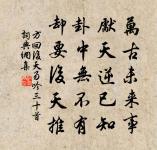 萬古未來事
天逆已知
卦中無不有
却要後天推
方回後天易吟三十首
詞典網集